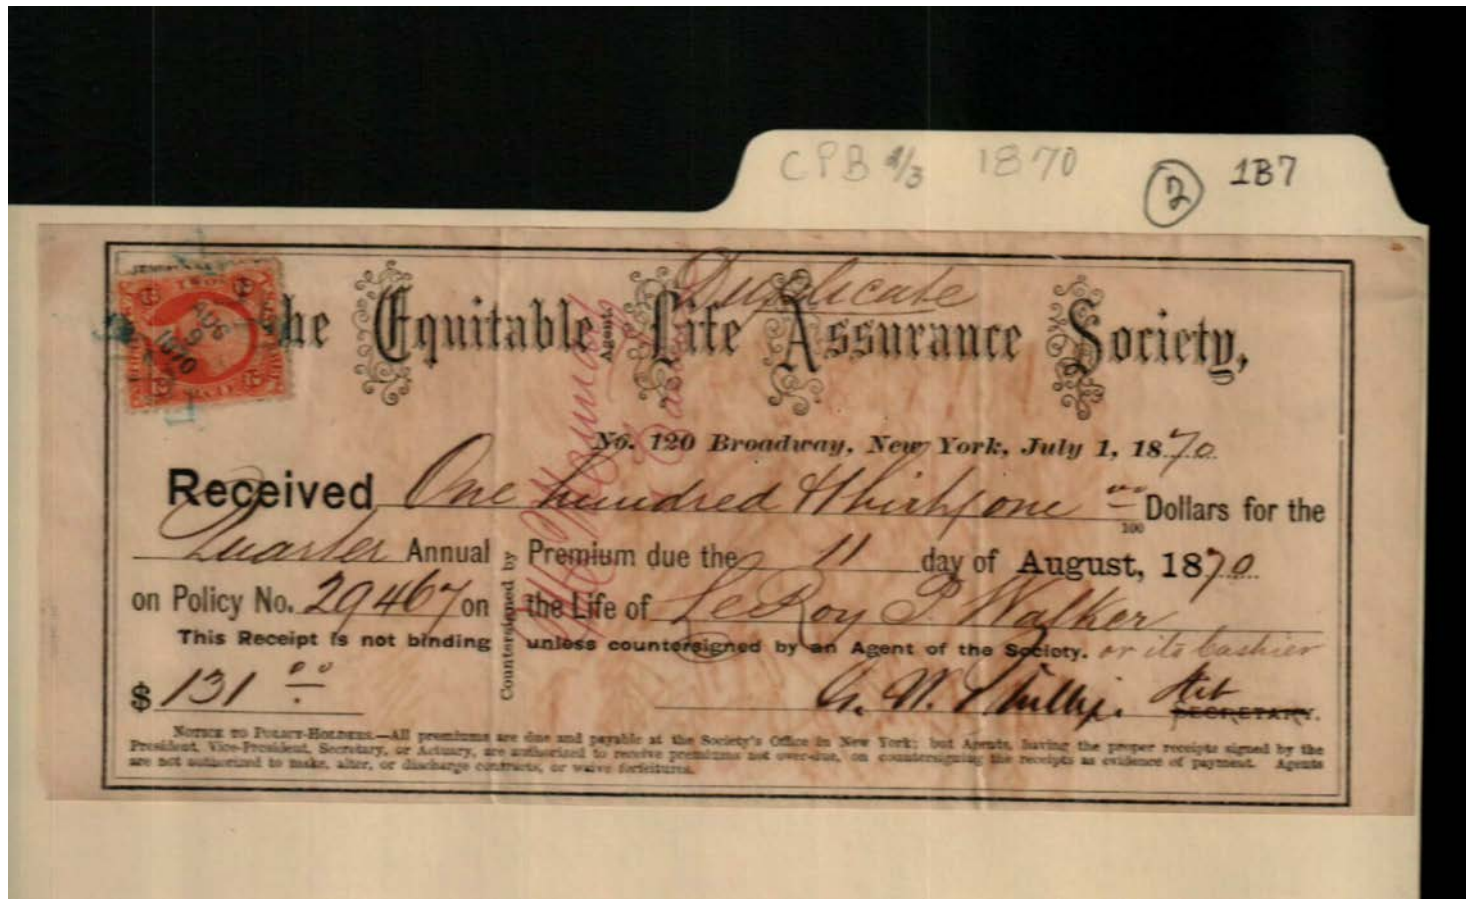 CPB 2/3 1870 2 1B7
Duplicate
The Equitable Life Assurance Society,
No. 120 Broadway, New York, July 1, 1870
Received One hundred & thirty one 00/100 Dollars for the
Quarter Annual Premium due the 11 day of August, 1870
on Policy No. 29467 on the Life of LeRoy P. Walker
This Receipt is not binding unless countersigned by an Agent of the Society. or its Cashier
$ 131 00 G. W. Phillips. Act SECRETARY.
NOTICE TO POLICY-HOLDERS.—All premiums are due and payable at the Society's Office in New York; but Agents, having the proper receipts signed by the
President, Vice-President, Secretary, or Actuary, are authorized to receive premiums not over-due, on countersigning the receipts as evidence of payment. Agents
are not authorized to make, alter, or discharge contracts, or waive forfeitures.
Countersigned by
Agent.
AUG 9 1870